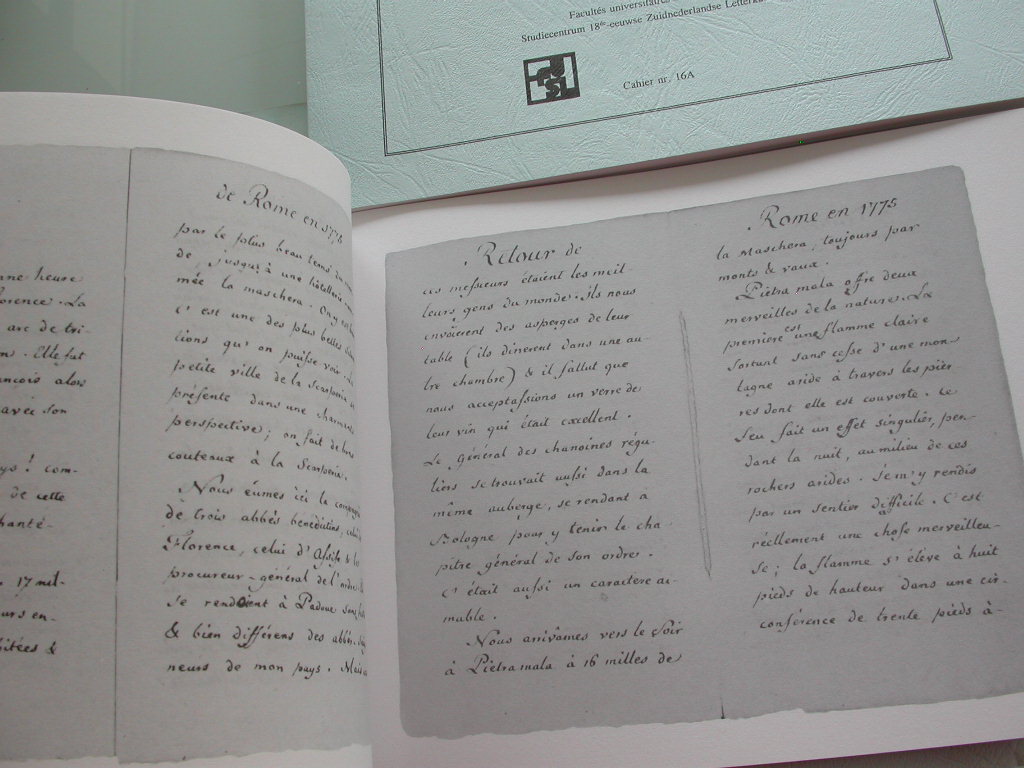 Facultés universitaires
Studiecentrum 18de-eeuwse Zuidnederlandse Letterku
Cahier nr. 16A
ane heure
orence. La
arc de tri-
n. Elle fut
ancois alors
avec son
ys! com-
de cette
hanté-
17 mil-
urs en-
bitées &
de Rome en 1775
par le plus beau tems du
de, jusqu'à une hôtellerie
mée la maschera. On y est
c'est une des plus belles
tions qu'on puisse voir. La
petite ville de la Scarperia se
présente dans une charmante
perspective; on fait de bons
couteaux à la Scarperia.
Nous eumes ici la compagnie
de trois abbés bénédictins, celui de
Florence, celui d'Assise & le
procureur-général de l'ordre.
se rendoient à Padoue sans
& bien différens des abbés
neurs de mon pays. Mais
Retour de
ces messieurs étaient les meil-
leurs gens du monde. Ils nous
envoierent des asperges de leur
table (ils dinerent dans une au-
tre chambre) & il fallut que
nous acceptassions un verre de
leur vin qui était excellent.
Le général des chanoines régu-
liers se trouvait aussi dans la
même auberge, se rendant à
Bologne pour y tenir le cha-
pitre général de son ordre.
C'était aussi un caractere ai-
mable.
Nous arrivâmes vers le soir
à Piétra mala à 16 milles de
Rome en 1775
la Maschera, toujours par
monts & vaux.
Piétra mala offre deux
merveilles de la nature. La
premiere est une flamme claire
sortant sans cesse d'une mon-
tagne aride à travers les pier
res dont elle est couverte. Ce
feu fait un effet singulier, pen-
dant la nuit, au milieu de ces
rochers arides. Je m'y rendis
par un sentier difficile. C'est
réellement une chose merveilleu-
se; la flamme s'élève à huit
pieds de hauteur dans une cir-
conférence de trente pieds à-